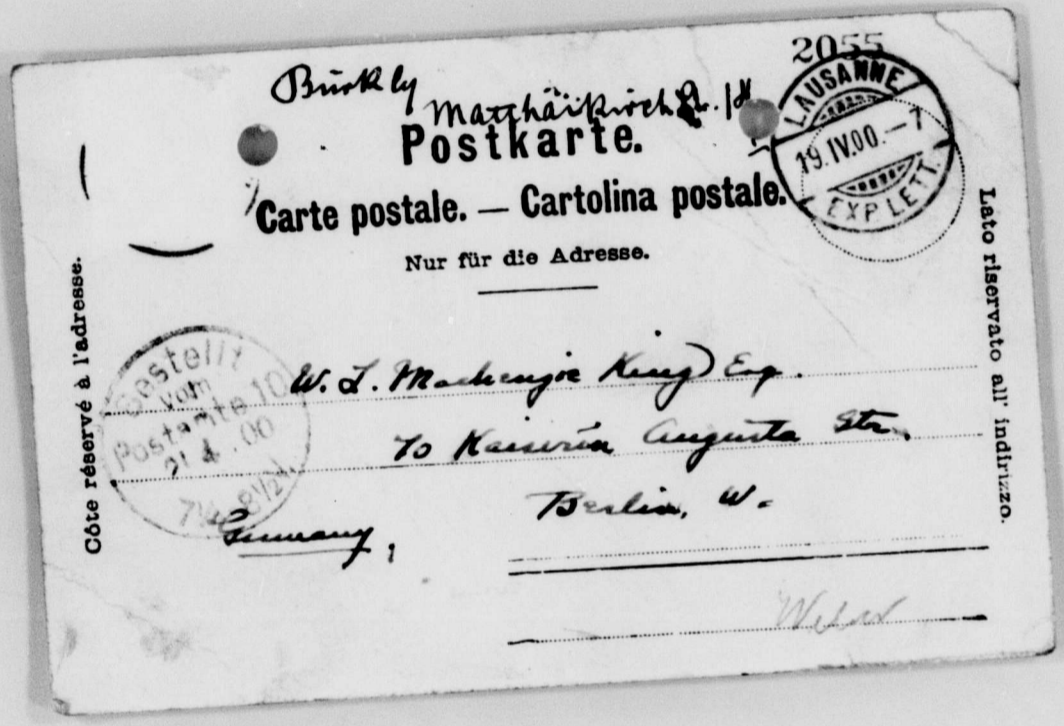 2055
Bürkly
Matthäikirch Str. 18
Postkarte.
Carte postale. — Cartolina postale.
Nur für die Adresse.
LAUSANNE
19.IV.00.—7
EXP. LETT.
Côte réservé à l'adresse.
Lato riservato all' indirizzo.
Bestellt
vom
Postamte 10
21 4 00
W. L. Mackenzie King Esq.
70 Kaiserin Augusta Str.
Berlin, W.
Germany,